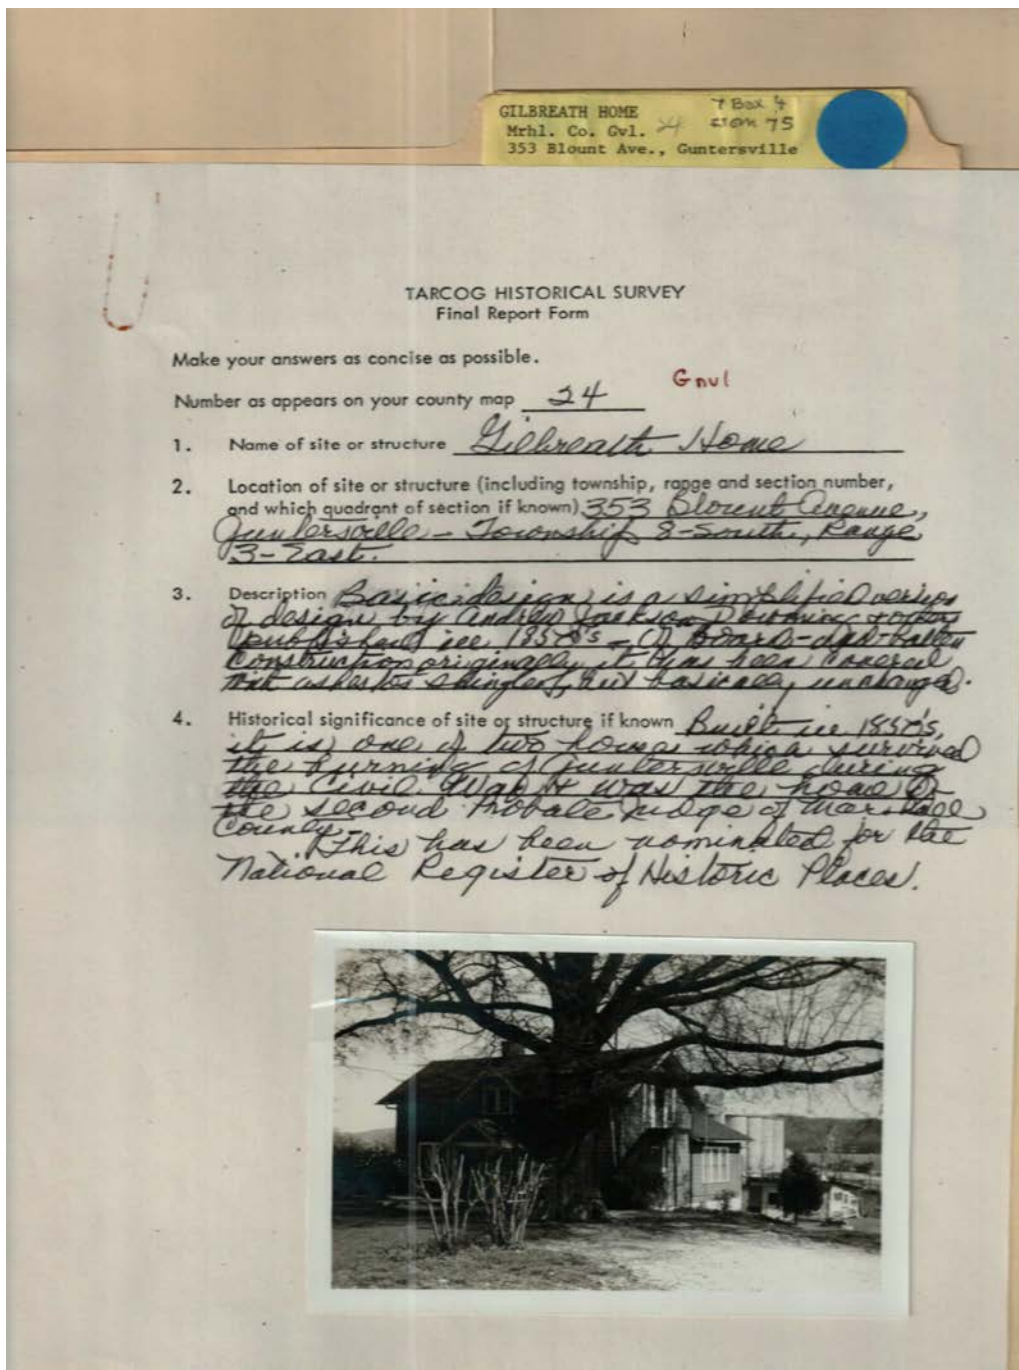 GILBREATH HOME 7 Box 4
Mrhl. Co. Gvl. 75
353 Blount Ave., Guntersville
TARCOG HISTORICAL SURVEY
Final Report Form
Make your answers as concise as possible.
Gnvl
Number as appears on your county map 24
1. Name of site or structure Gilbreath Home
2. Location of site or structure (including township, range and section number,
and which quadrant of section if known) 353 Blount Avenue,
Guntersville - Township 8-South, Range
3-East.
3. Description Basic design is a simplified version
of design by Andrew Jackson Downing
published in 1850's - Of Board-and-batten
construction originally it has been covered
with asbestos shingles, but basically unchanged.
4. Historical significance of site or structure if known Built in 1850's,
it is one of two houses which survived
the burning of Guntersville during
the Civil War. It was the home of
the second Probate Judge of Marshall
County.
This has been nominated for the
National Register of Historic Places.